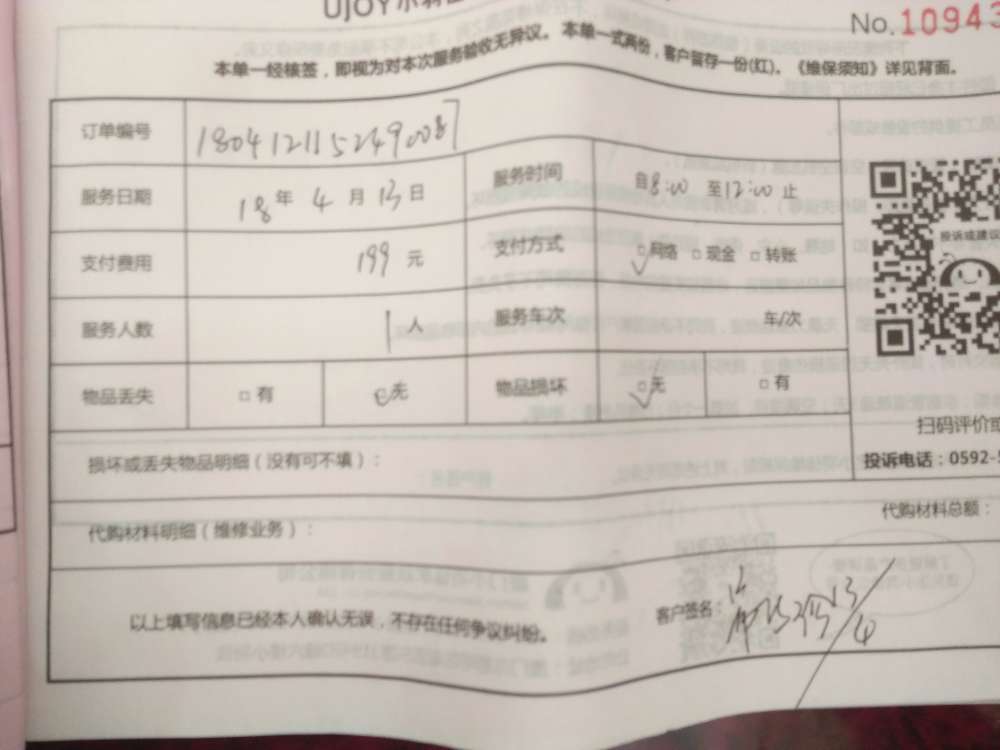 UJOY小羽佳
No. 10943
本单一经核签，即视为对本次服务验收无异议。 本单一式两份，客户留存一份(红)。《维保须知》详见背面。
订单编号 1804121152490087
服务日期 18 年 4 月 13 日 服务时间 自8:00 至12:00 止
支付费用 199 元 支付方式 □网络 □现金 □转账
服务人数 1 人 服务车次 车/次
物品丢失 □有 □无 物品损坏 □无 □有
投诉或建议
扫码评价或
投诉电话：0592-5
损坏或丢失物品明细（没有可不填）：
代购材料明细（维修业务）： 代购材料总额：
以上填写信息已经本人确认无误，不存在任何争议纠纷。 客户签名： 13/4